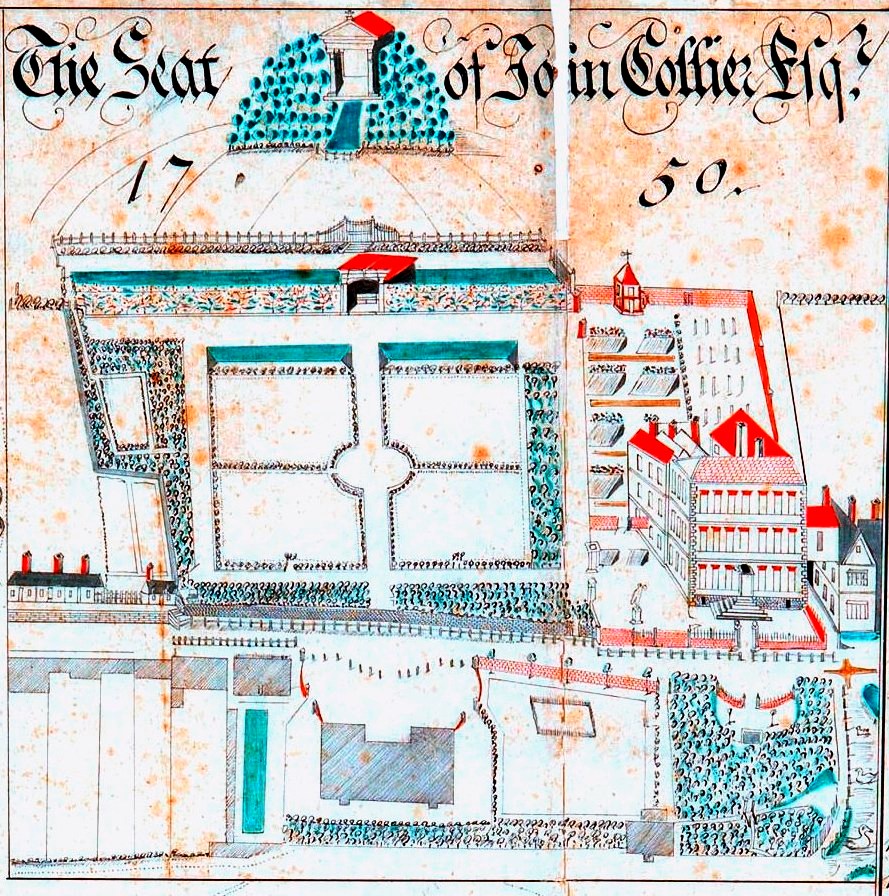 The Seat of John Collier Esqr.
1750.